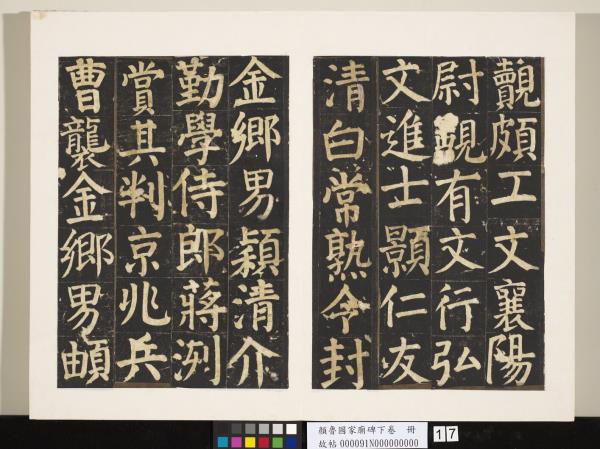 覿頗工文襄陽
尉有文行弘
文進士顥仁友
清白常熟令封
金鄉男穎清介
勤學侍郎蔣洌
賞其判京兆兵
曹襲金鄉男頔
顏魯國家廟碑下卷 冊
故帖 000091N000000000
17